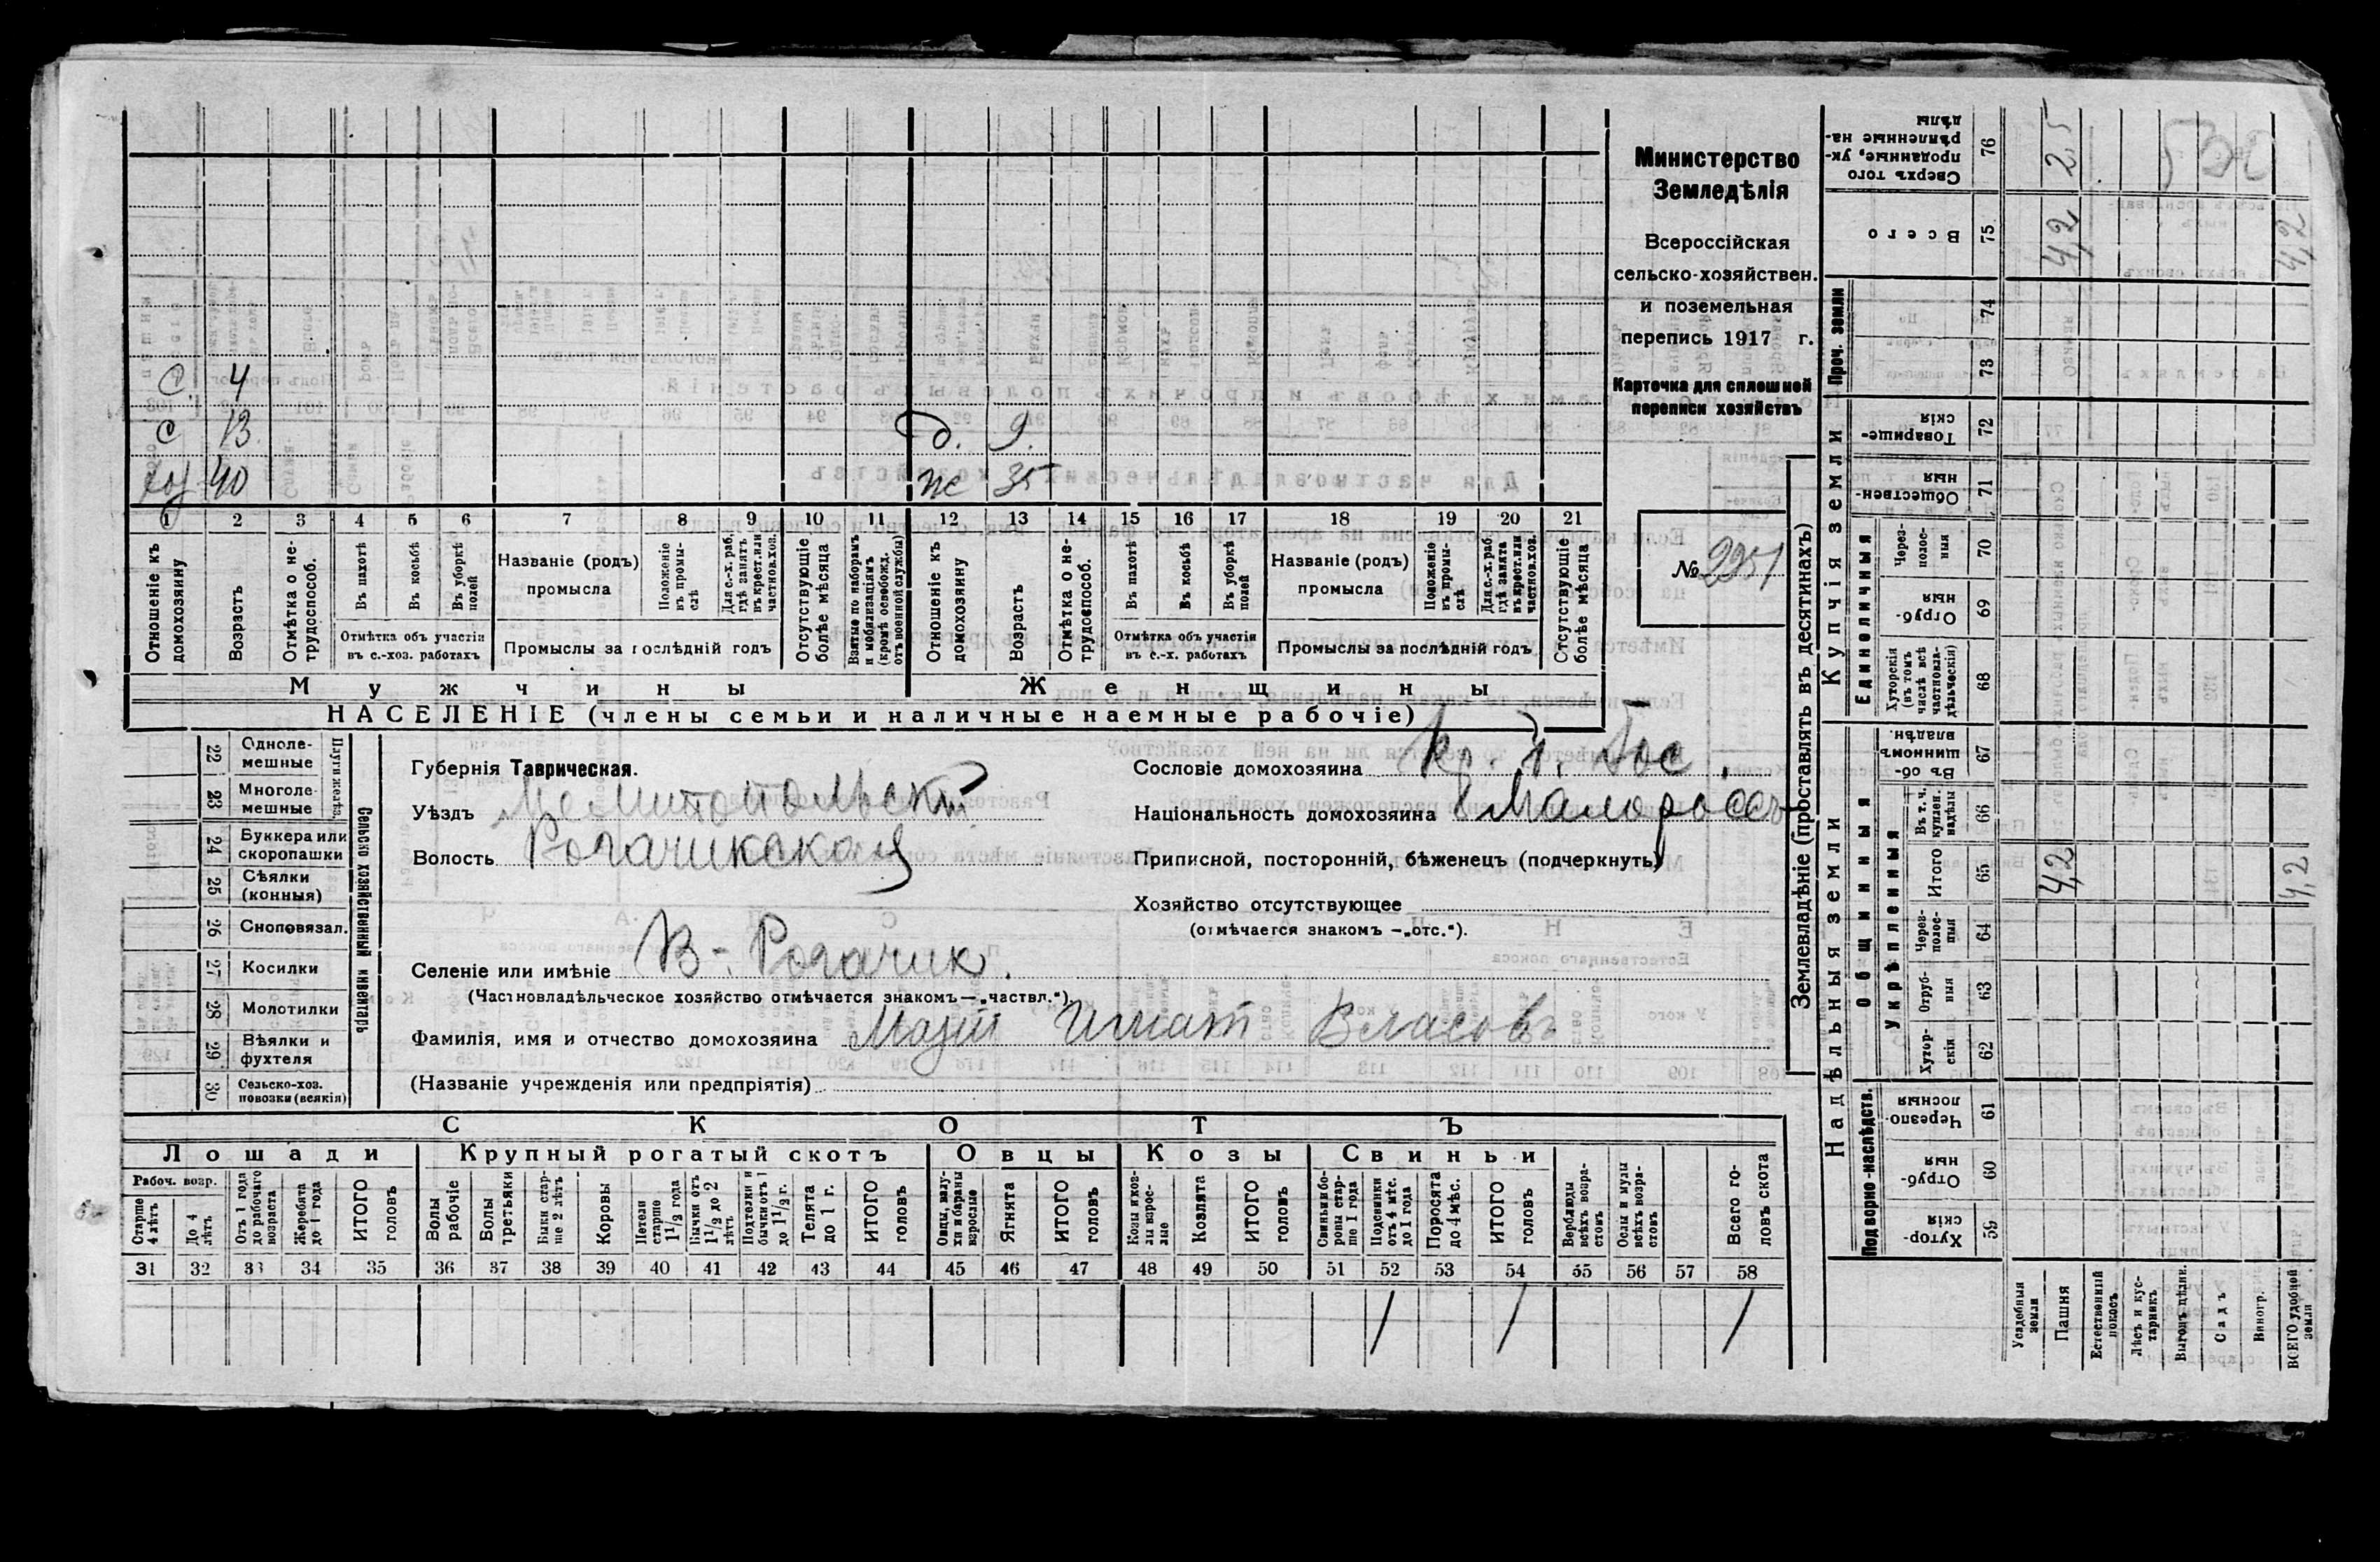 Министерство
Земледѣлія
Всероссійская
сельско-хозяйствен.
и поземельная
перепись 1917 г.
Карточка для сплошной
переписи хозяйствъ
№ 2251
С. 4
с 13 д. 9.
хоз 40 ж 35
1 2 3 4 5 6 7 8 9 10 11 12 13 14 15 16 17 18 19 20 21
Отношеніе къ домохозяину
Возрастъ
Отмѣтка о не-трудоспособ.
Въ пахотѣ
Въ косьбѣ
Въ уборкѣ полей
Отмѣтка объ участіи
въ с.-хоз. работахъ
Названіе (родъ)
промысла
Положеніе въ промы-слѣ
Для с.-х. раб. гдѣ занятъ въ крест. или частнов. хоз.
Промыслы за послѣдній годъ
Отсутствующіе болѣе мѣсяца
Взятые по наборамъ и мобилизаціямъ (кромѣ освобожд. отъ военной службы)
Отношеніе къ домохозяину
Возрастъ
Отмѣтка о не-трудоспособ.
Въ пахотѣ
Въ косьбѣ
Въ уборкѣ полей
Отмѣтка объ участіи
въ с.-х. работахъ
Названіе (родъ)
промысла
Положеніе въ промы-слѣ
Для с.-х. раб. гдѣ занята въ крест. или частнов. хоз.
Промыслы за послѣдній годъ
Отсутствующіе болѣе мѣсяца
Мужчины Женщины
НАСЕЛЕНІЕ (члены семьи и наличные наемные рабочіе)
Сельско хозяйственный инвентарь
Плуги желѣз.
22 Одноле-мешные
23 Многоле-мешные
24 Буккера или скоропашки
25 Сѣялки (конныя)
26 Сноповязал.
27 Косилки
28 Молотилки
29 Вѣялки и фухтеля
30 Сельско-хоз. повозки (всякія)
Губернія Таврическая.
Уѣздъ Мелитопольскій
Волость Рогачикская
Селеніе или имѣніе В-. Рогачик.
(Частновладѣльческое хозяйство отмѣчается знакомъ—„частвл.“).
Фамилія, имя и отчество домохозяина Игнат Власовъ
(Названіе учрежденія или предпріятія)
Сословіе домохозяина кр. б. Гос.
Національность домохозяина Малороссъ
Приписной, посторонній, бѣженецъ (подчеркнуть)
Хозяйство отсутствующее
(отмѣчается знакомъ —„отс.“).
СКОТЪ
Лошади Крупный рогатый скотъ Овцы Козы Свиньи
Рабоч. возр.
Старше 4 лѣтъ
До 4 лѣтъ
Отъ 1 года до рабочаго возраста
Жеребята до 1 года
ИТОГО головъ
Волы рабочіе
Волы третьяки
Быки стар-ше 2 лѣтъ
Коровы
Нетели старше 1½ года
Бычки отъ 1½ до 2 лѣтъ
Подтелки и бычки отъ 1 до 1½ г.
Телята до 1 г.
ИТОГО головъ
Овцы, валу-хи и бараны взрослые
Ягнята
ИТОГО головъ
Козы и коз-лы взрос-лые
Козлята
ИТОГО головъ
Свиньи и бо-ровы стар-ше 1 года
Подсвинки отъ 4 мѣс. до 1 года
Поросята до 4 мѣс.
ИТОГО головъ
Верблюды всѣхъ возра-стовъ
Ослы и мулы всѣхъ возра-стовъ
Всего го-ловъ скота
31 32 33 34 35 36 37 38 39 40 41 42 43 44 45 46 47 48 49 50 51 52 53 54 55 56 57 58
1 1 1
Землевладѣніе (проставлять въ десятинахъ)
Надѣльныя земли
Купчія земли
Проч. земли
Подворно-наслѣдств.
Общинныя
Укрѣпленныя
Единоличныя
Хутор-скія 59
Отруб-ныя 60
Черезпо-лосныя 61
Хутор-скія 62
Отруб-ныя 63
Через-полос-ныя 64
Итого 65
Въ т. ч. куплен. надѣлы 66
Въ об-щинномъ владѣн. 67
Хуторскія (въ томъ числѣ всѣ частновла-дѣльческія) 68
Отруб-ныя 69
Через-полос-ныя 70
Обществен-ныя 71
Товарище-скія 72
73
74
Всего 75
Сверхъ того проданные, ук-рѣпленные на-дѣлы 76
Усадебныя земли
Пашня
Естественный покосъ
Лѣсъ и кус-тарникъ
Выгонъ, цѣлин.
Садъ
Виногр.
ВСЕГО удобной земли
4,2 4,2
4,2 4,2
2,5